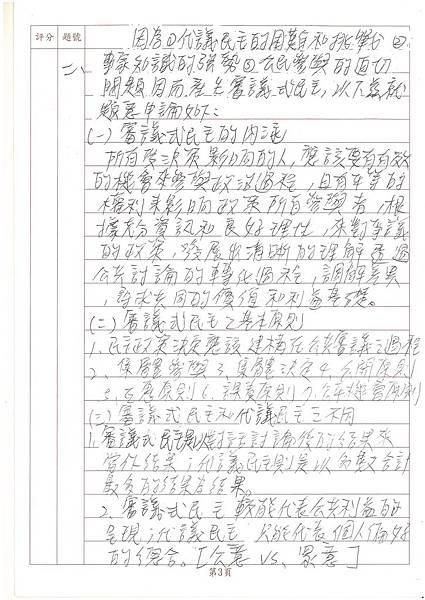 評分 題號
因為①代議民主的困難和挑戰②
二、專家知識的強勢③公民參與的迫切
問題因而產生審議式民主,以下茲就
題意申論如下:
(一)審議式民主的內涵
所有受決策影響的人,應該要有有效
的機會來參與政治過程,且有平等的
權利來影響政策所有參與者,根
據充分資訊和良好理性,來對爭議
的政策,發展出清晰的理解透過
公共討論的轉化過程,調解差異
,尋求共同的價值和利益基礎。
(二)審議式民主之基本原則
1、民主政策決定應該建構在公共審議之過程
2、集體參與3、集體決定4、公開原則
5、互惠原則6、課責原則7、公平機會原則
(三)審議式民主和代議民主之不同
1、審議式民主是以討論後的結果來
當作結果;代議民主則是以多數合計
最多的結果為結果。
2、審議式民主較能代表公共利益的
呈現;代議民主只能代表個人偏好
的總合。[公意vs、眾意]
第3頁